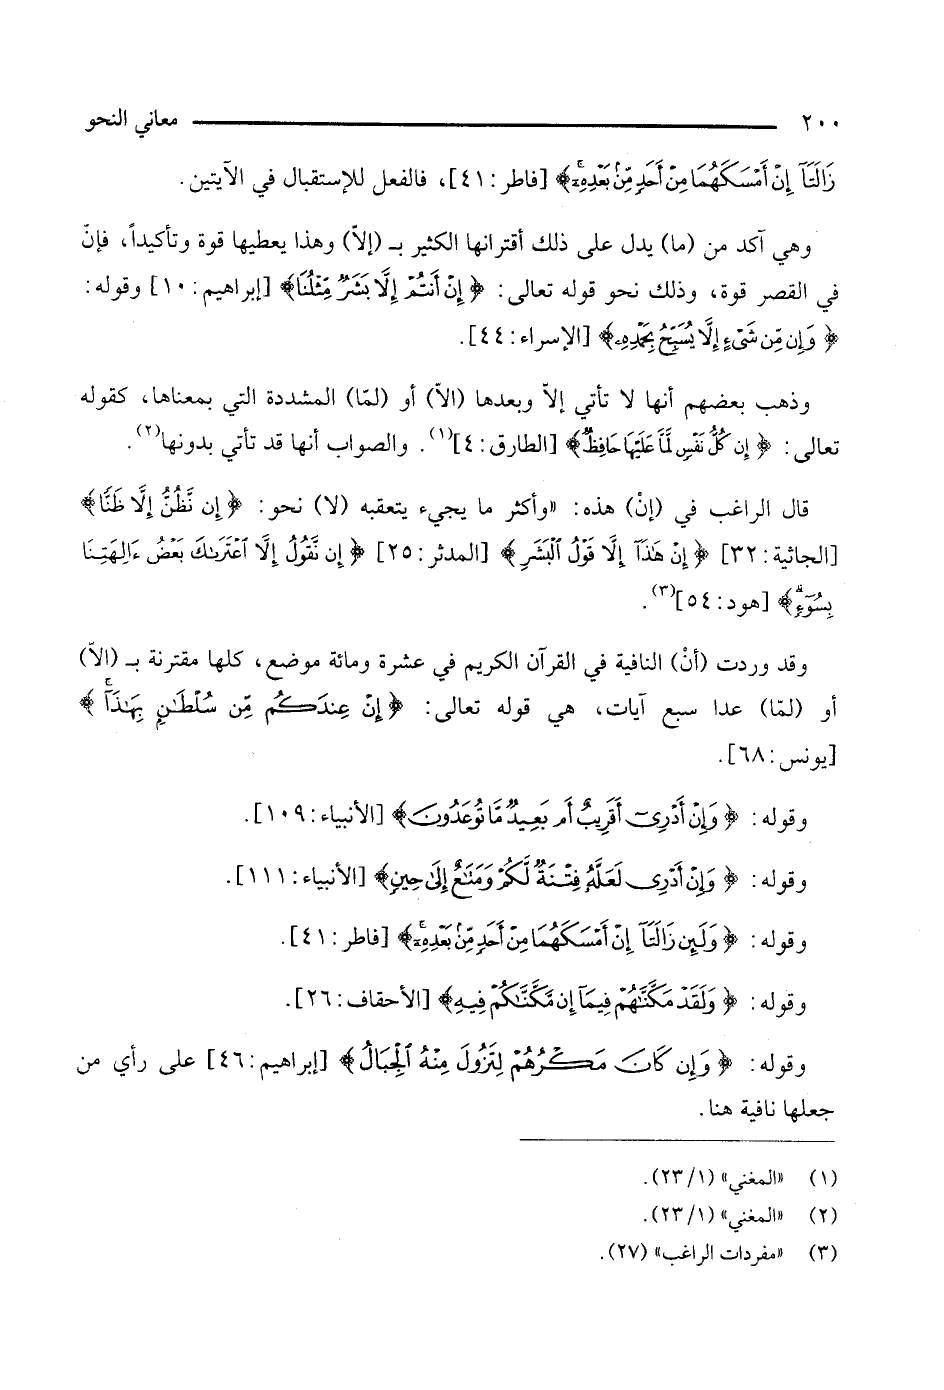 ٢٠٠ معاني النحو
زَالَتَآ إِنْ أَمْسَكَهُمَا مِنْ أَحَدٍ مِّنۢ بَعْدِهِۦٓ ۚ﴾ [فاطر: ٤١]، فالفعل للإستقبال في الآيتين.
وهي آكد من (ما) يدل على ذلك أقترانها الكثير بـ (إلاّ) وهذا يعطيها قوة وتأكيداً، فإنّ
في القصر قوة، وذلك نحو قوله تعالى: ﴿إِنْ أَنتُمْ إِلَّا بَشَرٌ مِّثْلُنَا﴾ [إبراهيم: ١٠] وقوله:
﴿وَإِن مِّن شَىْءٍ إِلَّا يُسَبِّحُ بِحَمْدِهِۦ﴾ [الإسراء: ٤٤].
وذهب بعضهم أنها لا تأتي إلاّ وبعدها (الاّ) أو (لمّا) المشددة التي بمعناها، كقوله
تعالى: ﴿إِن كُلُّ نَفْسٍ لَّمَّا عَلَيْهَا حَافِظٌ﴾ [الطارق: ٤](١). والصواب أنها قد تأتي بدونها(٢).
قال الراغب في (إنْ) هذه: «وأكثر ما يجيء يتعقبه (لا) نحو: ﴿إِن نَّظُنُّ إِلَّا ظَنًّا﴾
[الجاثية: ٣٢] ﴿إِنْ هَٰذَآ إِلَّا قَوْلُ ٱلْبَشَرِ﴾ [المدثر: ٢٥] ﴿إِن نَّقُولُ إِلَّا ٱعْتَرَىٰكَ بَعْضُ ءَالِهَتِنَا
بِسُوٓءٍ ۗ﴾ [هود: ٥٤](٣).
وقد وردت (أنْ) النافية في القرآن الكريم في عشرة ومائة موضع، كلها مقترنة بـ (الاّ)
أو (لمّا) عدا سبع آيات، هي قوله تعالى: ﴿إِنْ عِندَكُم مِّن سُلْطَٰنٍۭ بِهَٰذَآ ۚ﴾
[يونس: ٦٨].
وقوله: ﴿وَإِنْ أَدْرِىٓ أَقَرِيبٌ أَم بَعِيدٌ مَّا تُوعَدُونَ﴾ [الأنبياء: ١٠٩].
وقوله: ﴿وَإِنْ أَدْرِى لَعَلَّهُۥ فِتْنَةٌ لَّكُمْ وَمَتَٰعٌ إِلَىٰ حِينٍ﴾ [الأنبياء: ١١١].
وقوله: ﴿وَلَئِن زَالَتَآ إِنْ أَمْسَكَهُمَا مِنْ أَحَدٍ مِّنۢ بَعْدِهِۦٓ ۚ﴾ [فاطر: ٤١].
وقوله: ﴿وَلَقَدْ مَكَّنَّٰهُمْ فِيمَآ إِن مَّكَّنَّٰكُمْ فِيهِ﴾ [الأحقاف: ٢٦].
وقوله: ﴿وَإِن كَانَ مَكْرُهُمْ لِتَزُولَ مِنْهُ ٱلْجِبَالُ﴾ [إبراهيم: ٤٦] على رأي من
جعلها نافية هنا.
(١) «المغني» (١/ ٢٣).
(٢) «المغني» (١/ ٢٣).
(٣) «مفردات الراغب» (٢٧).